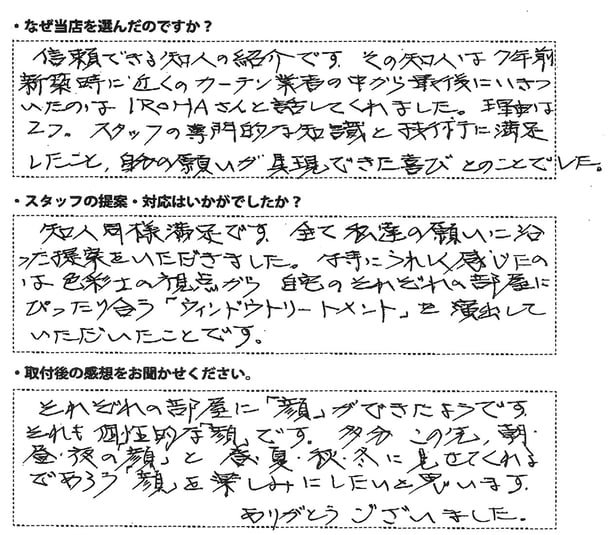 ・なぜ当店を選んだのですか？
信頼できる知人の紹介です。その知人は7年前
新築時に近くのカーテン業者の中から最後にいきつ
いたのはIROHAさんと話してくれました。理由は
2つ。スタッフの専門的な知識と技術に満足
したこと、自分の願いが具現できた喜びとのことでした。
・スタッフの提案・対応はいかがでしたか？
知人同様満足です。全て私達の願いに沿
った提案をいただきました。特にうれしく感じたの
は色彩士の視点から自宅のそれぞれの部屋に
ぴったり合う「ウィンドウトリートメント」を演出して
いただいたことです。
・取付後の感想をお聞かせください。
それぞれの部屋に「顔」ができたようです。
それも個性的な「顔」です。多分この先、朝・
昼・夜の「顔」と春・夏・秋・冬に見せてくれる
であろう「顔」を楽しみにしたいと思います。
ありがとうございました。